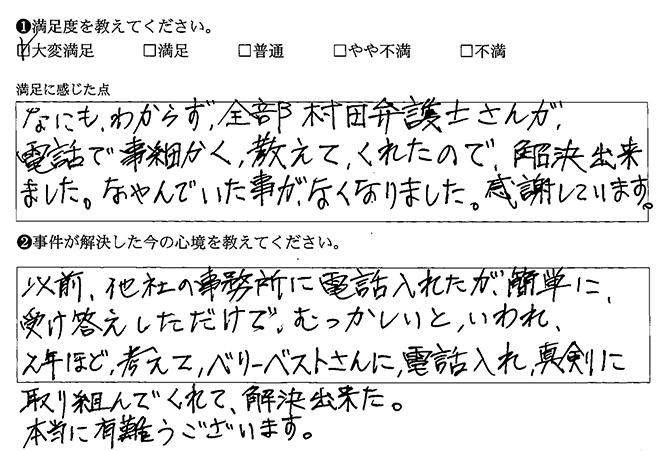 ❶満足度を教えてください。
☑大変満足 □満足 □普通 □やや不満 □不満
満足に感じた点
なにも、わからず、全部村田弁護士さんが、
電話で事細かく、教えて、くれたので、解決出来
ました。なやんでいた事が、なくなりました。感謝しています。
❷事件が解決した今の心境を教えてください。
以前、他社の事務所に電話入れたが、簡単に、
受け答えしただけで、むつかしいと、いわれ、
2年ほど、考えて、ベリーベストさんに、電話入れ、真剣に
取り組んでくれて、解決出来た。
本当に有難うございます。